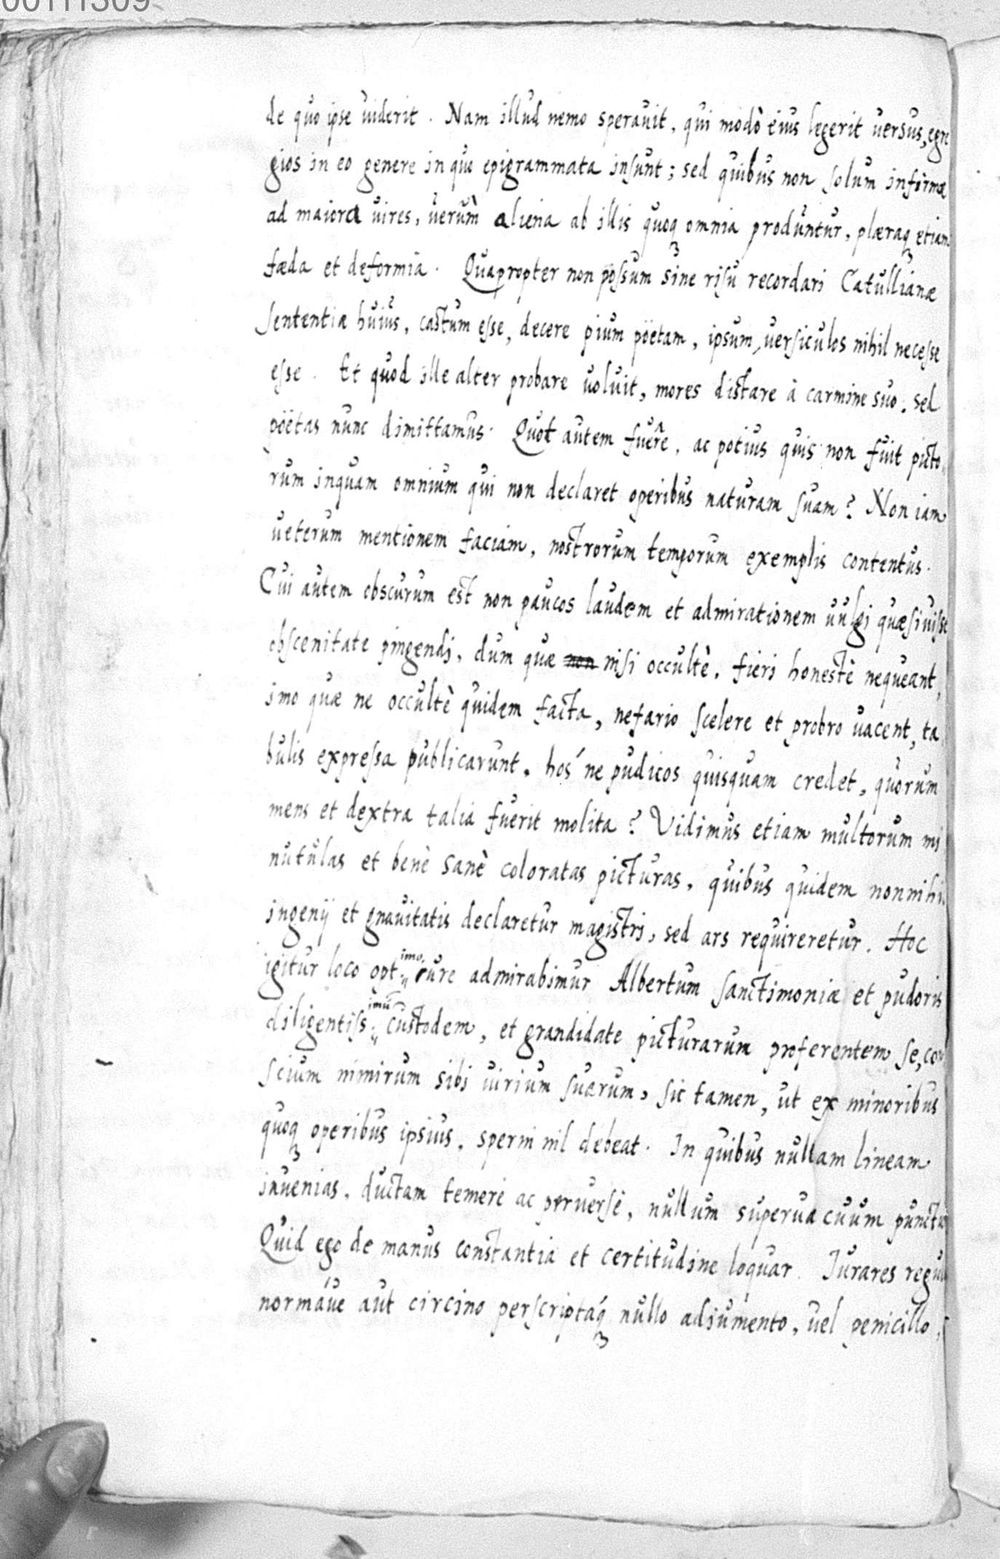 00111309
de quo ipse uiderit. Nam illud nemo sperauit, qui modò eius legerit uersus, egre
gios in eo genere in quo epigrammata insunt; sed quibus non solum informæ
ad maiora uires, uerùm aliena ab illis quoq omnia produntur, plæraq etiam
fæda et deformia. Quapropter non possum sine risu recordari Catullianæ
sententiæ huius, castum esse, decere pium poëtam, ipsum, uersiculos nihil necesse
esse. Et quod ille alter probare uoluit, mores distare à carmine suo. sed
poëtas nunc dimittamus. Quot autem fuêre, ac potius quis non fuit picto
rum inquam omnium qui non declaret operibus naturam suam? Non iam
ueterum mentionem faciam, nostrorum temporum exemplis contentus.
Cui autem obscurum est non paucos laudem et admirationem uulgi quæsiuisse
obscenitate pingendi, dum quæ non nisi occultè, fieri honestè nequeant,
imo quæ ne occultè quidem facta, nefario scelere et probro uacent, ta
bulis expressa publicarunt. hos´ne pudicos quisquam credet, quorum
mens et dextra talia fuerit molita? Vidimus etiam multorum mi
nutulas et benè sanè coloratas picturas, quibus quidem nonnihil
ingenij et gnauitatis declaretur magistri, sed ars requireretur. Hoc
igitur loco optimo iure admirabimur Albertum sanctimoniæ et pudoris
diligentissimum custodem, et grandidate picturarum proferentem se, con
scium nimirum sibi uirium suarum, sic tamen, ut ex minoribus
quoq operibus ipsius, sperni nil debeat. In quibus nullam lineam
inuenias, ductam temerè ac peruersè, nullum superuacuum punctum
Quid ego de manus constantia et certitudine loquar. Iurares regula
normáue aut circino perscriptaq́ nullo adiumento, uel penicillo,